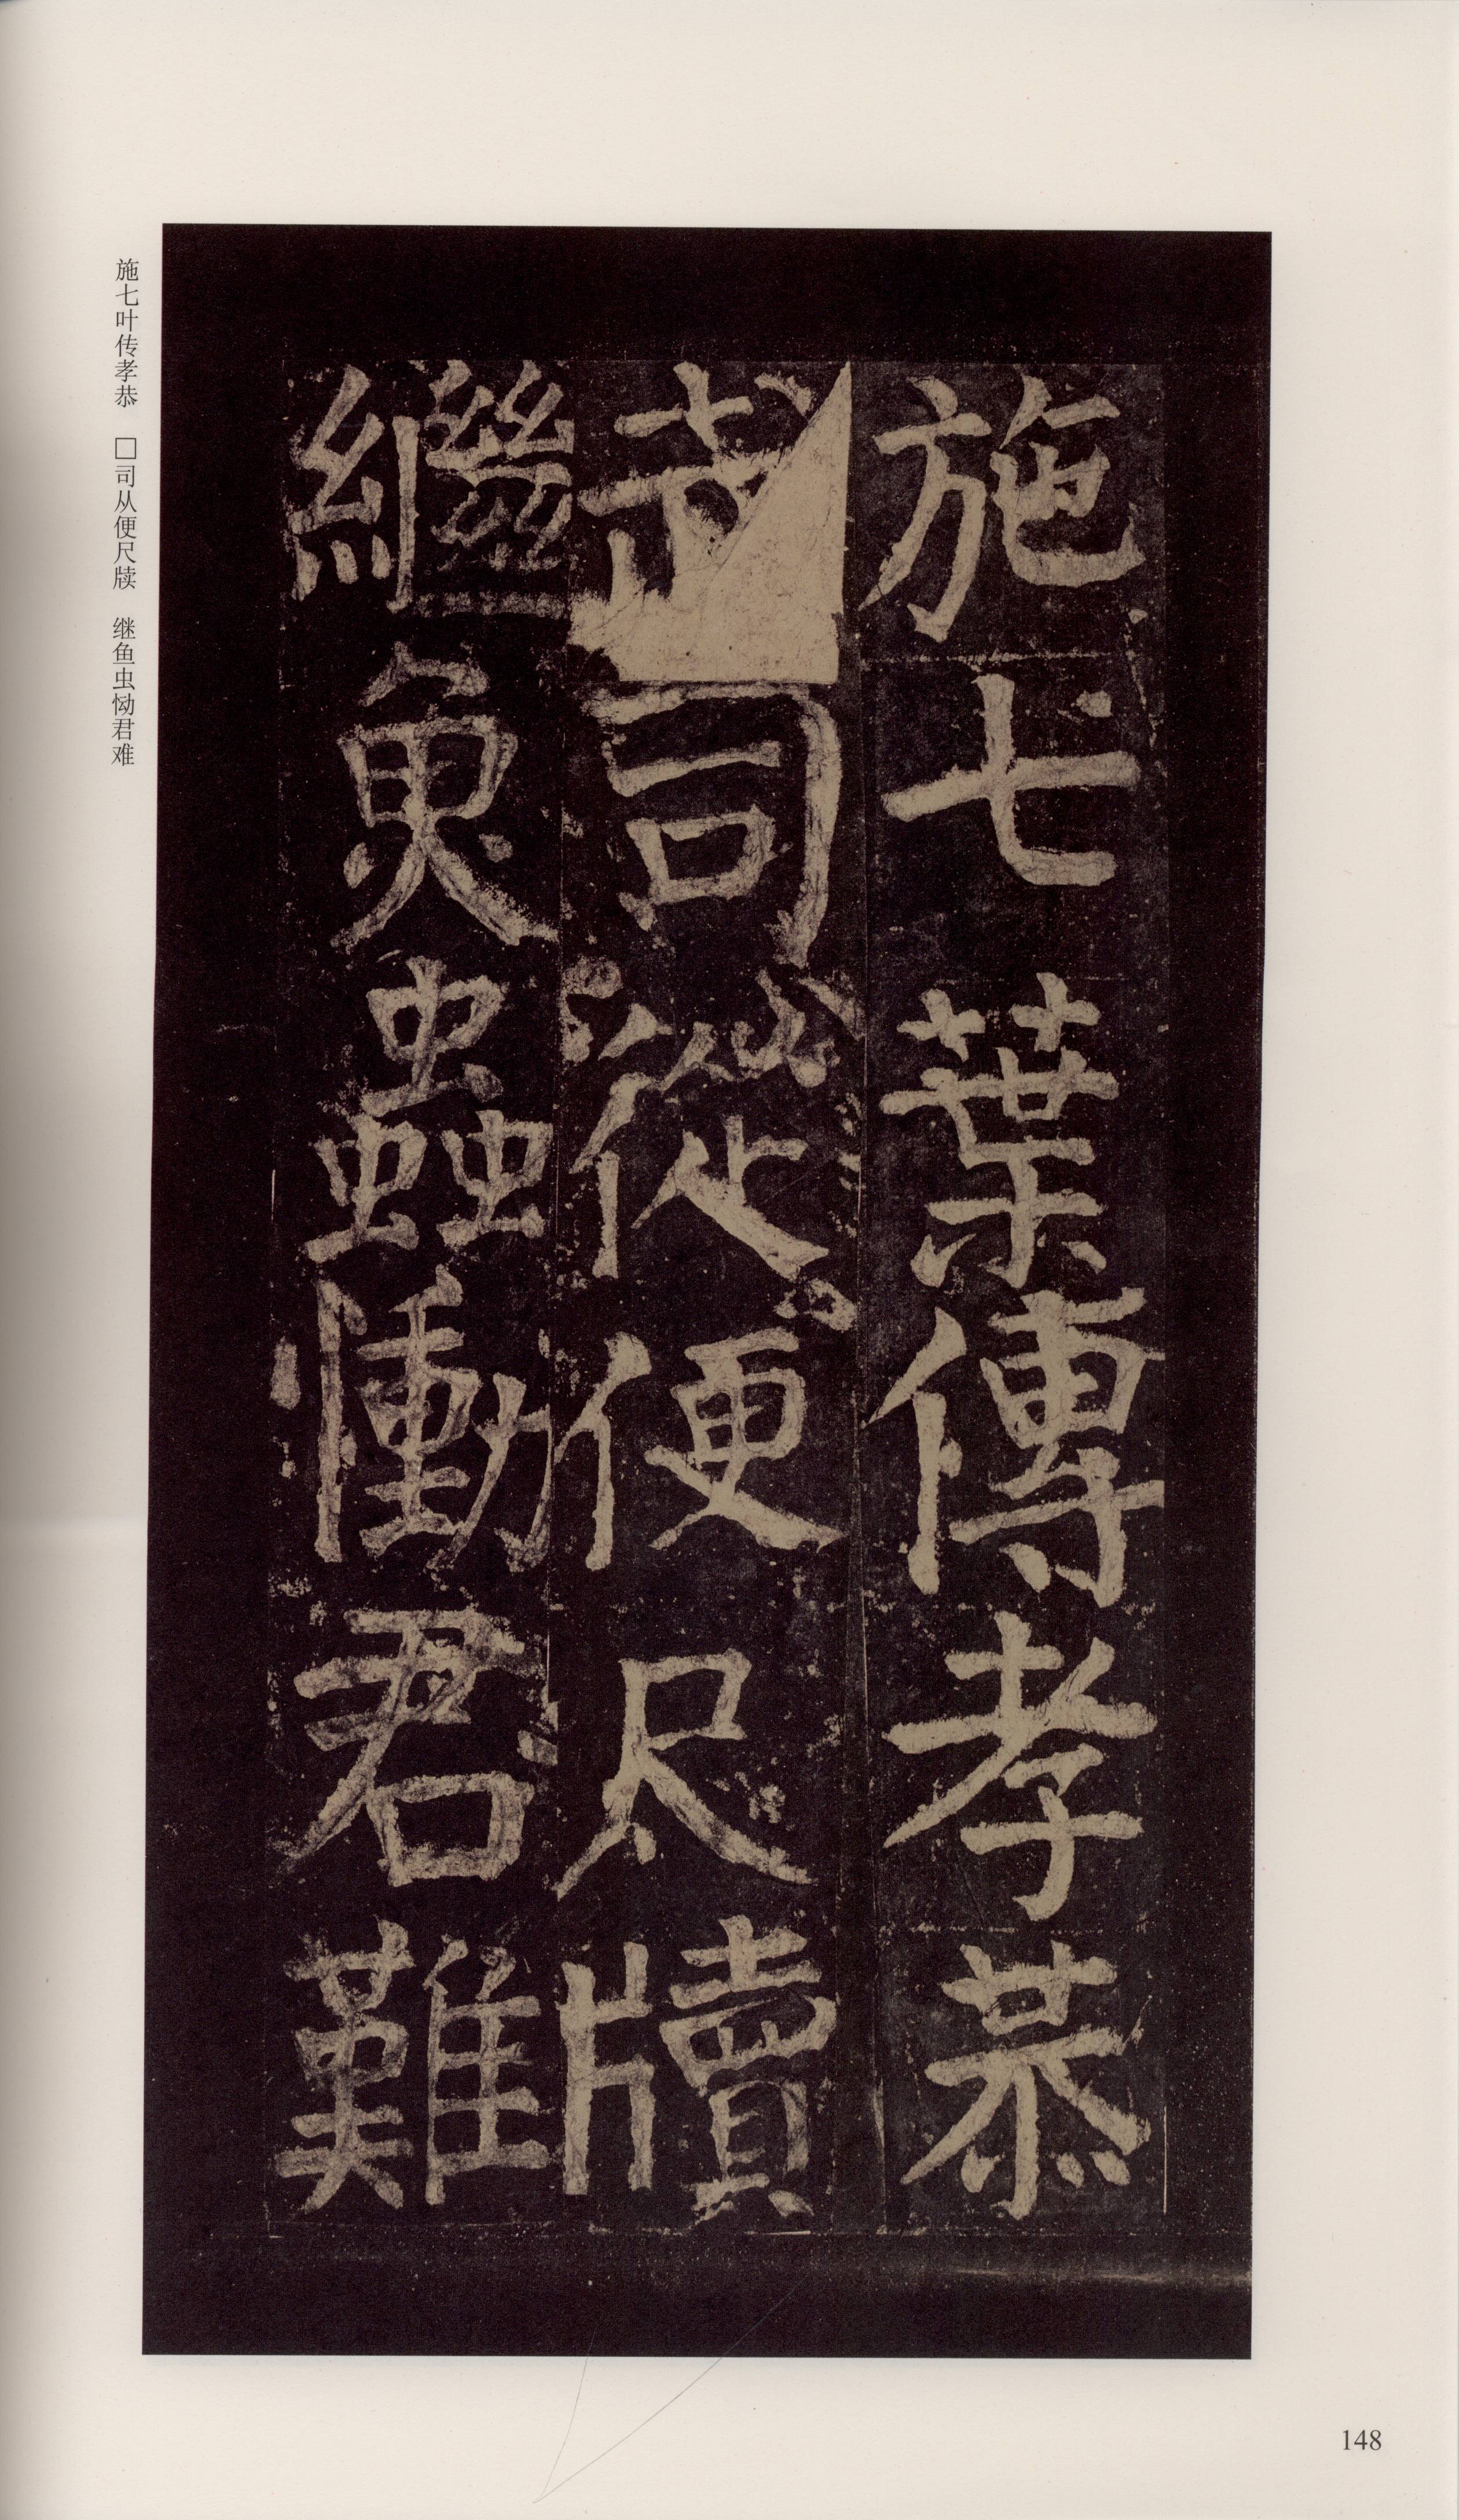 施七葉傳孝恭
司從便尺牘
繼魚蟲慟君難
施七叶传孝恭 □司从便尺牍 继鱼虫恸君难
148